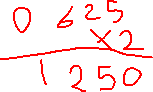 0 625
×2
1250